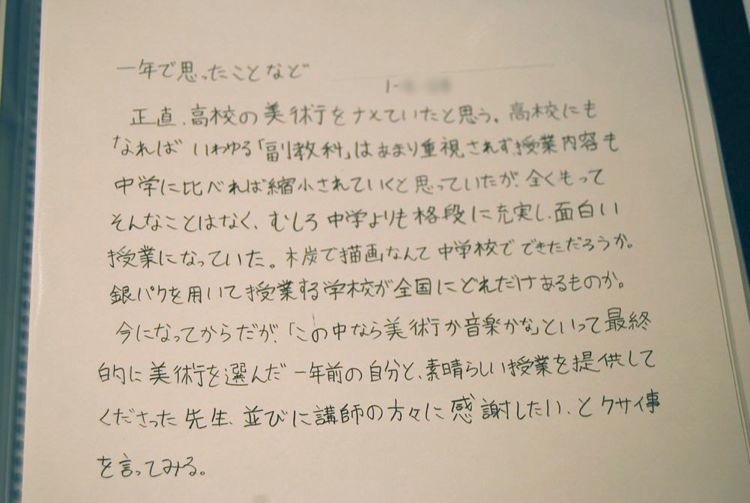 一年で思ったことなど
1-
正直、高校の美術をナメていたと思う。高校にも
なれば いわゆる「副教科」はあまり重視されず、授業内容も
中学に比べれば縮小されていくと思っていたが、全くもって
そんなことはなく、むしろ中学よりも格段に充実し、面白い
授業になっていた。木炭で描画なんて中学校でできただろうか。
銀パクを用いて授業する学校が全国にどれだけあるものか。
今になってからだが、「この中なら美術か音楽かな」といって最終
的に美術を選んだ一年前の自分と、素晴らしい授業を提供して
くださった先生、並びに講師の方々に感謝したい、とクサイ事
を言ってみる。